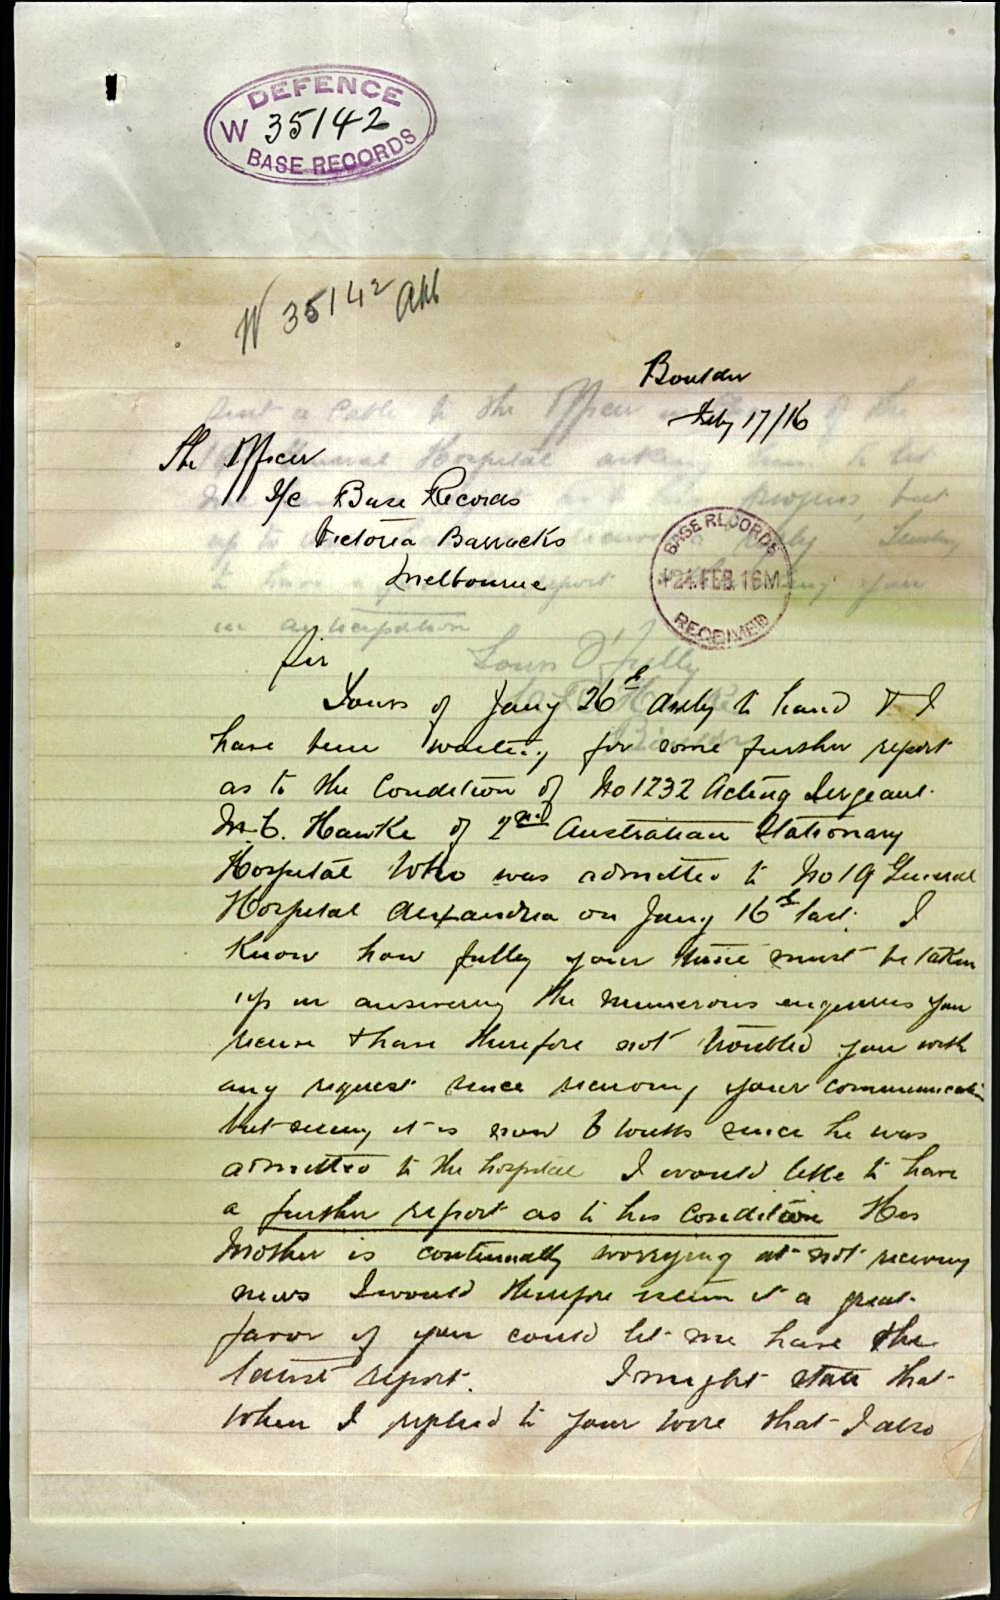 DEFENCE
W 35142
BASE RECORDS
W 35142
Boulder
Feby 17/16
The Officer
I/c Base Records
Victoria Barracks
Melbourne
BASE RECORDS
24. FEB. 16
RECEIVED
Sir
Yours of Jany 26th duly to hand & I
have been waiting for some further report
as to the condition of No 1232 Acting Sergeant
Hawke of 2nd Australian Stationary
Hospital who was admitted to No 19 General
Hospital Alexandria on Jany 16th last. I
know how fully your time must be taken
up in answering the numerous enquiries you
receive & have therefore not troubled you with
any request since receiving your communication
but seeing it is now 6 weeks since he was
admitted to the hospital I would like to have
a further report as to his condition His
Mother is continually worrying at not receiving
news I would therefore esteem it a great
favor if you could let me have the
latest report. I might state that
when I replied to your wire that I also
sent a cable to the Officer
General Hospital asking him to let
progress but
up to reply
to have a report you
in anticipation
Yours